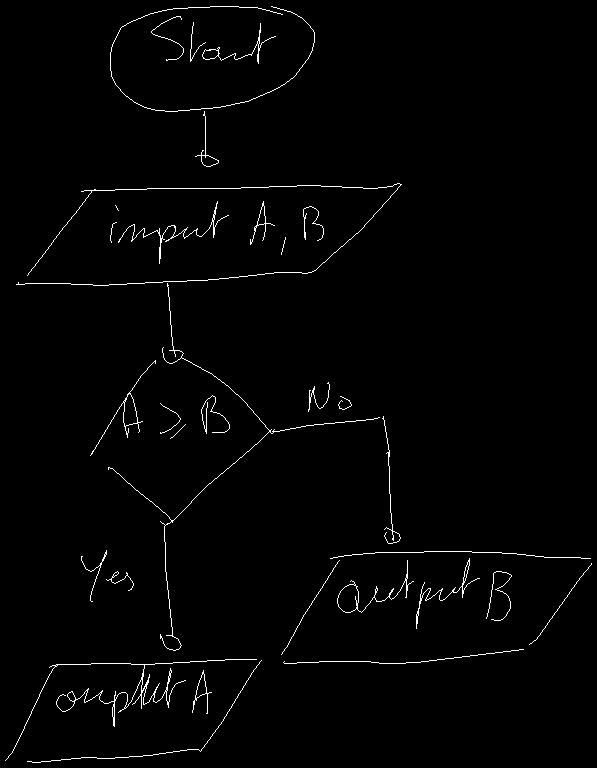 Start
input A, B
A ≥ B
No
Yes
Output B
output A